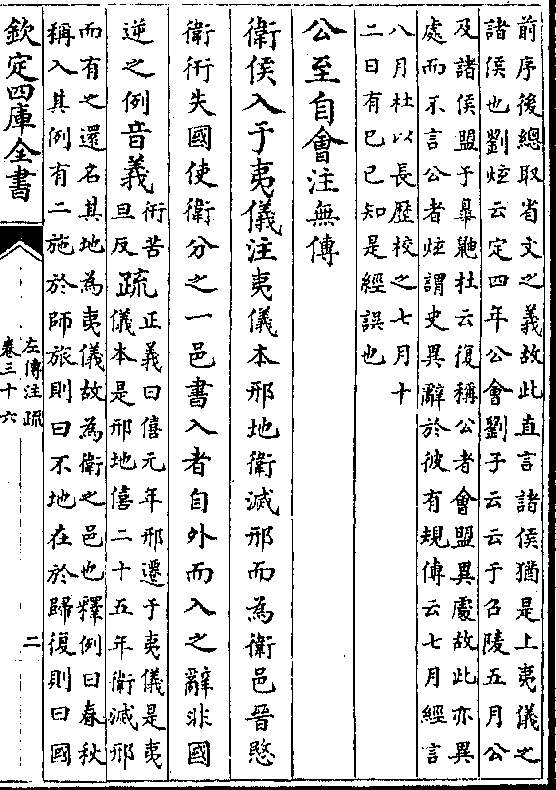 前序後總取省文之義故此直言諸侯猶是上夷儀之
諸侯也劉炫云定四年公會劉子云云于召陵五月公
及諸侯盟于臯鼬杜云復稱公者會盟異處故此亦異
處而不言公者炫謂史異辭於彼有規傳云七月經言
八月杜以長歴校之七月十
二日有己巳知是經誤也
公至自會注無傳
衛侯入于夷儀注夷儀本邢地衛滅邢而為衛邑晉愍
衛衎失國使衛分之一邑書入者自外而入之辭非國
逆之例音義衎苦
旦反疏正義曰僖元年邢遷于夷儀是夷
儀本是邢地僖二十五年衛滅邢
而有之還名其地為夷儀故為衛之邑也釋例曰春秋
稱入其例有二施於師旅則曰不地在於歸復則曰國
欽定四庫全書
左傳注疏
卷三十六
二